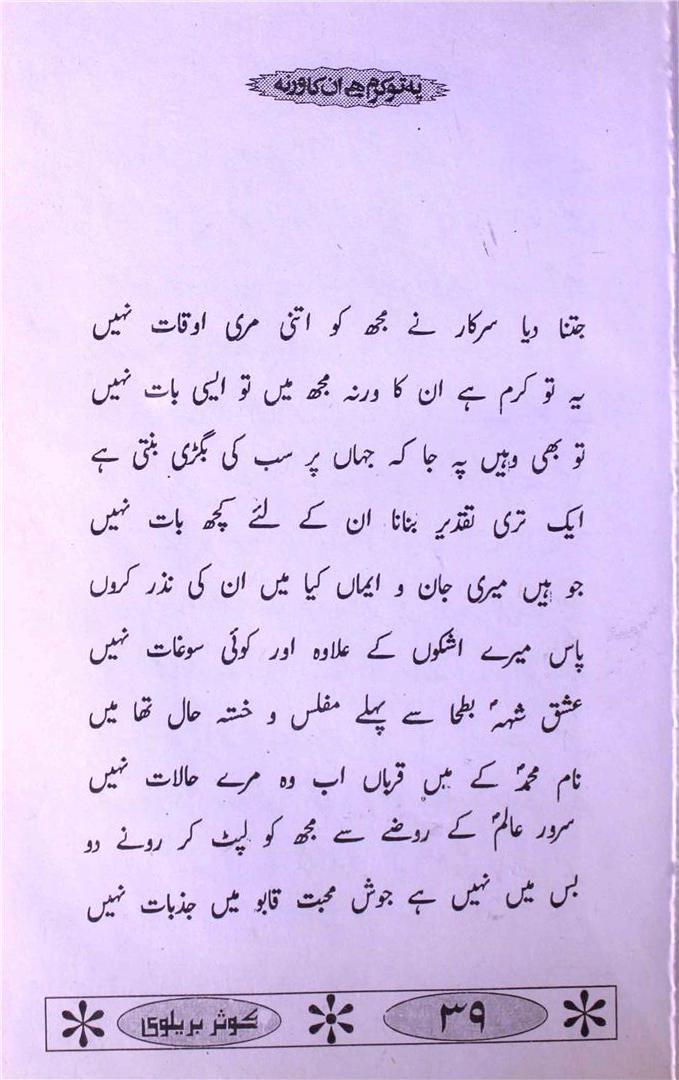 یہ تو کرم ہے ان کا ورنہ
جتنا دیا سرکار نے مجھ کو اتنی مری اوقات نہیں
یہ تو کرم ہے ان کا ورنہ مجھ میں تو ایسی بات نہیں
تو بھی وہیں پہ جا کہ جہاں پر سب کی بگڑی بنتی ہے
ایک تری تقدیر بنانا ان کے لئے کچھ بات نہیں
جو ہیں میری جان و ایماں کیا میں ان کی نذر کروں
پاس میرے اشکوں کے علاوہ اور کوئی سوغات نہیں
عشق شہہؐ بطحا سے پہلے مفلس و خستہ حال تھا میں
نام محمدؐ کے میں قرباں اب وہ مرے حالات نہیں
سرور عالمؐ کے روضے سے مجھ کو لپٹ کر رونے دو
بس میں نہیں ہے جوش محبت قابو میں جذبات نہیں
۳۹
کوثر بریلوی